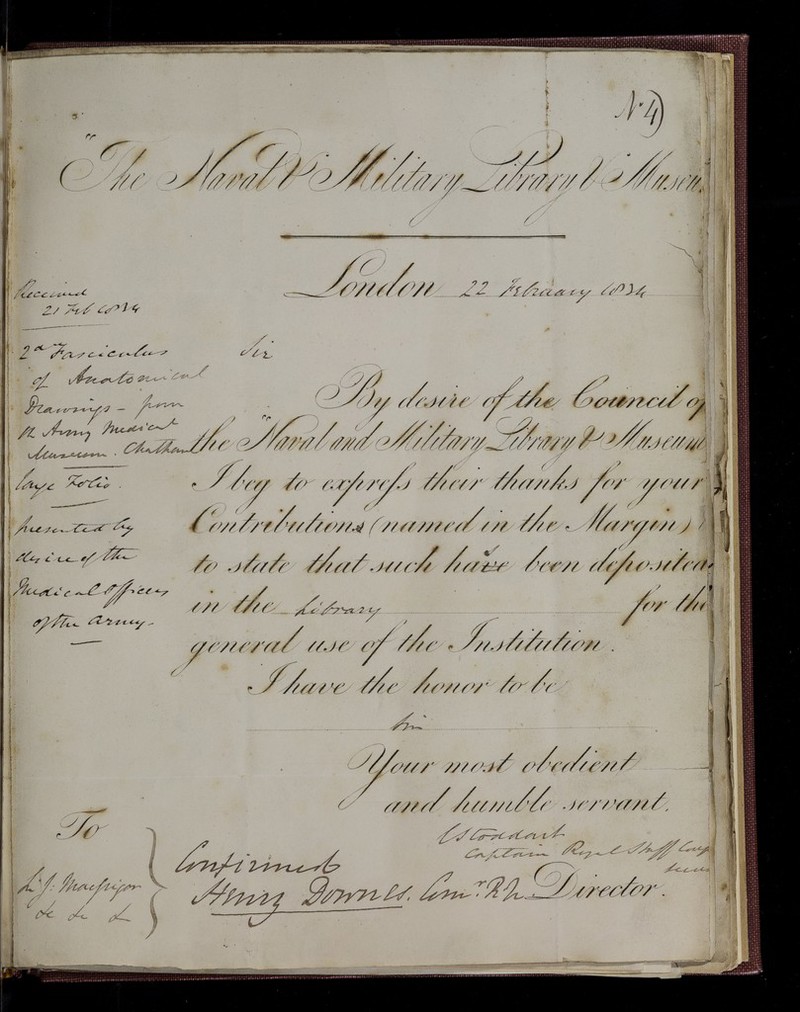 No 4
"The Naval & Military Library & Museum
London 22 February 1834
Received
21 Feb 1834
2d Fasciculus
of Anatomical
Drawings - from
the Army Medical
Museum. Chatham
large Folio.
presented by
desire of the
Medical Officers
of the Army.
Sir
By desire of the Council of
the "Naval and Military Library & Museum
I beg to express their thanks for your
Contributions (named in the Margin)
to state that such have been deposited
in the Library for the
general use of the Institution.
I have the honor to be
Sir
Your most obedient
and humble servant.
Stoddart
Captain Royal Staff Corps
Director.
Confirmed
Henry Downes. Comr. RN
To
Sir J: Macgrigor
&c &c &c